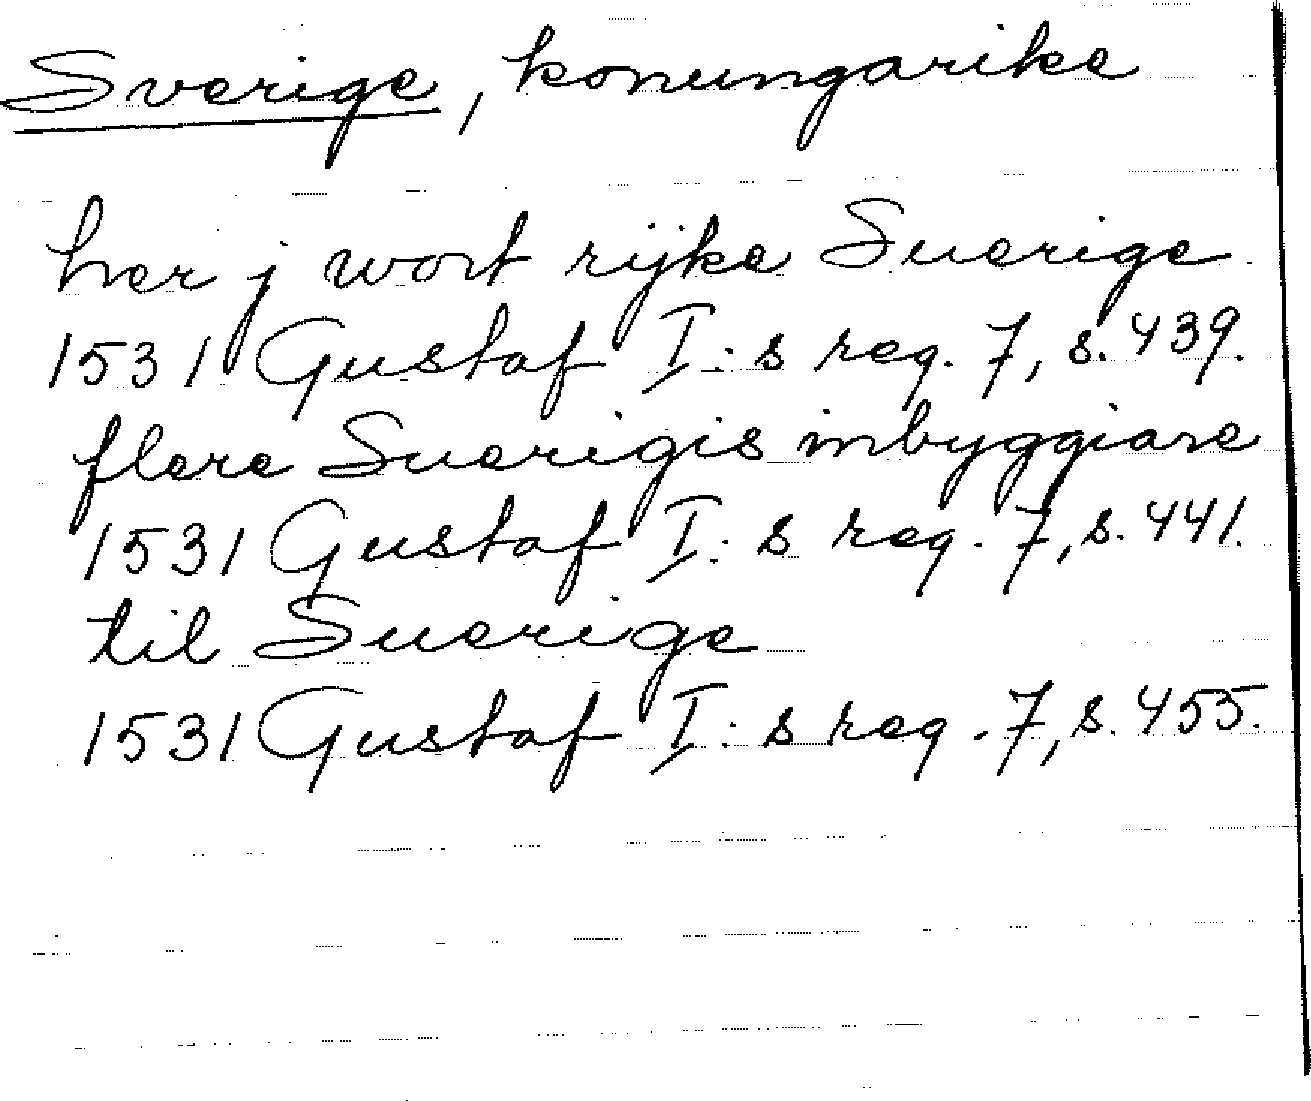 Sverige, konungarike
her j wort rijke Suerige
1531 Gustaf I:s reg. 7, s. 439.
flere Suerigis inbyggiare
1531 Gustaf I:s reg. 7, s. 441.
til Suerige
1531 Gustaf I:s reg. 7, s. 455.